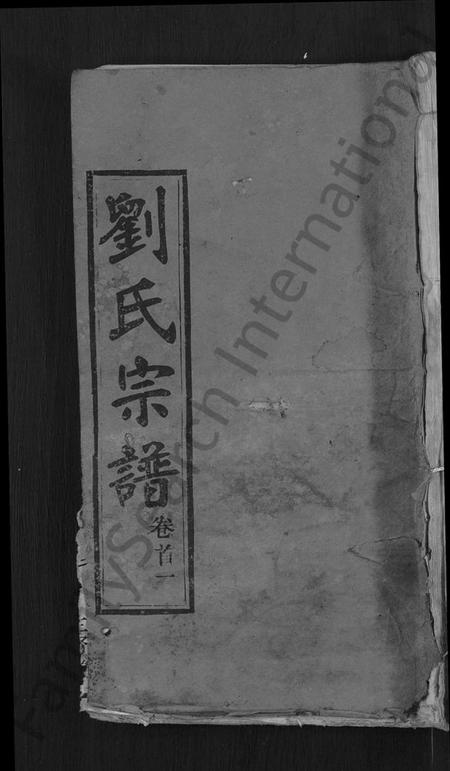 劉氏宗譜
卷首一
FamilySearch International